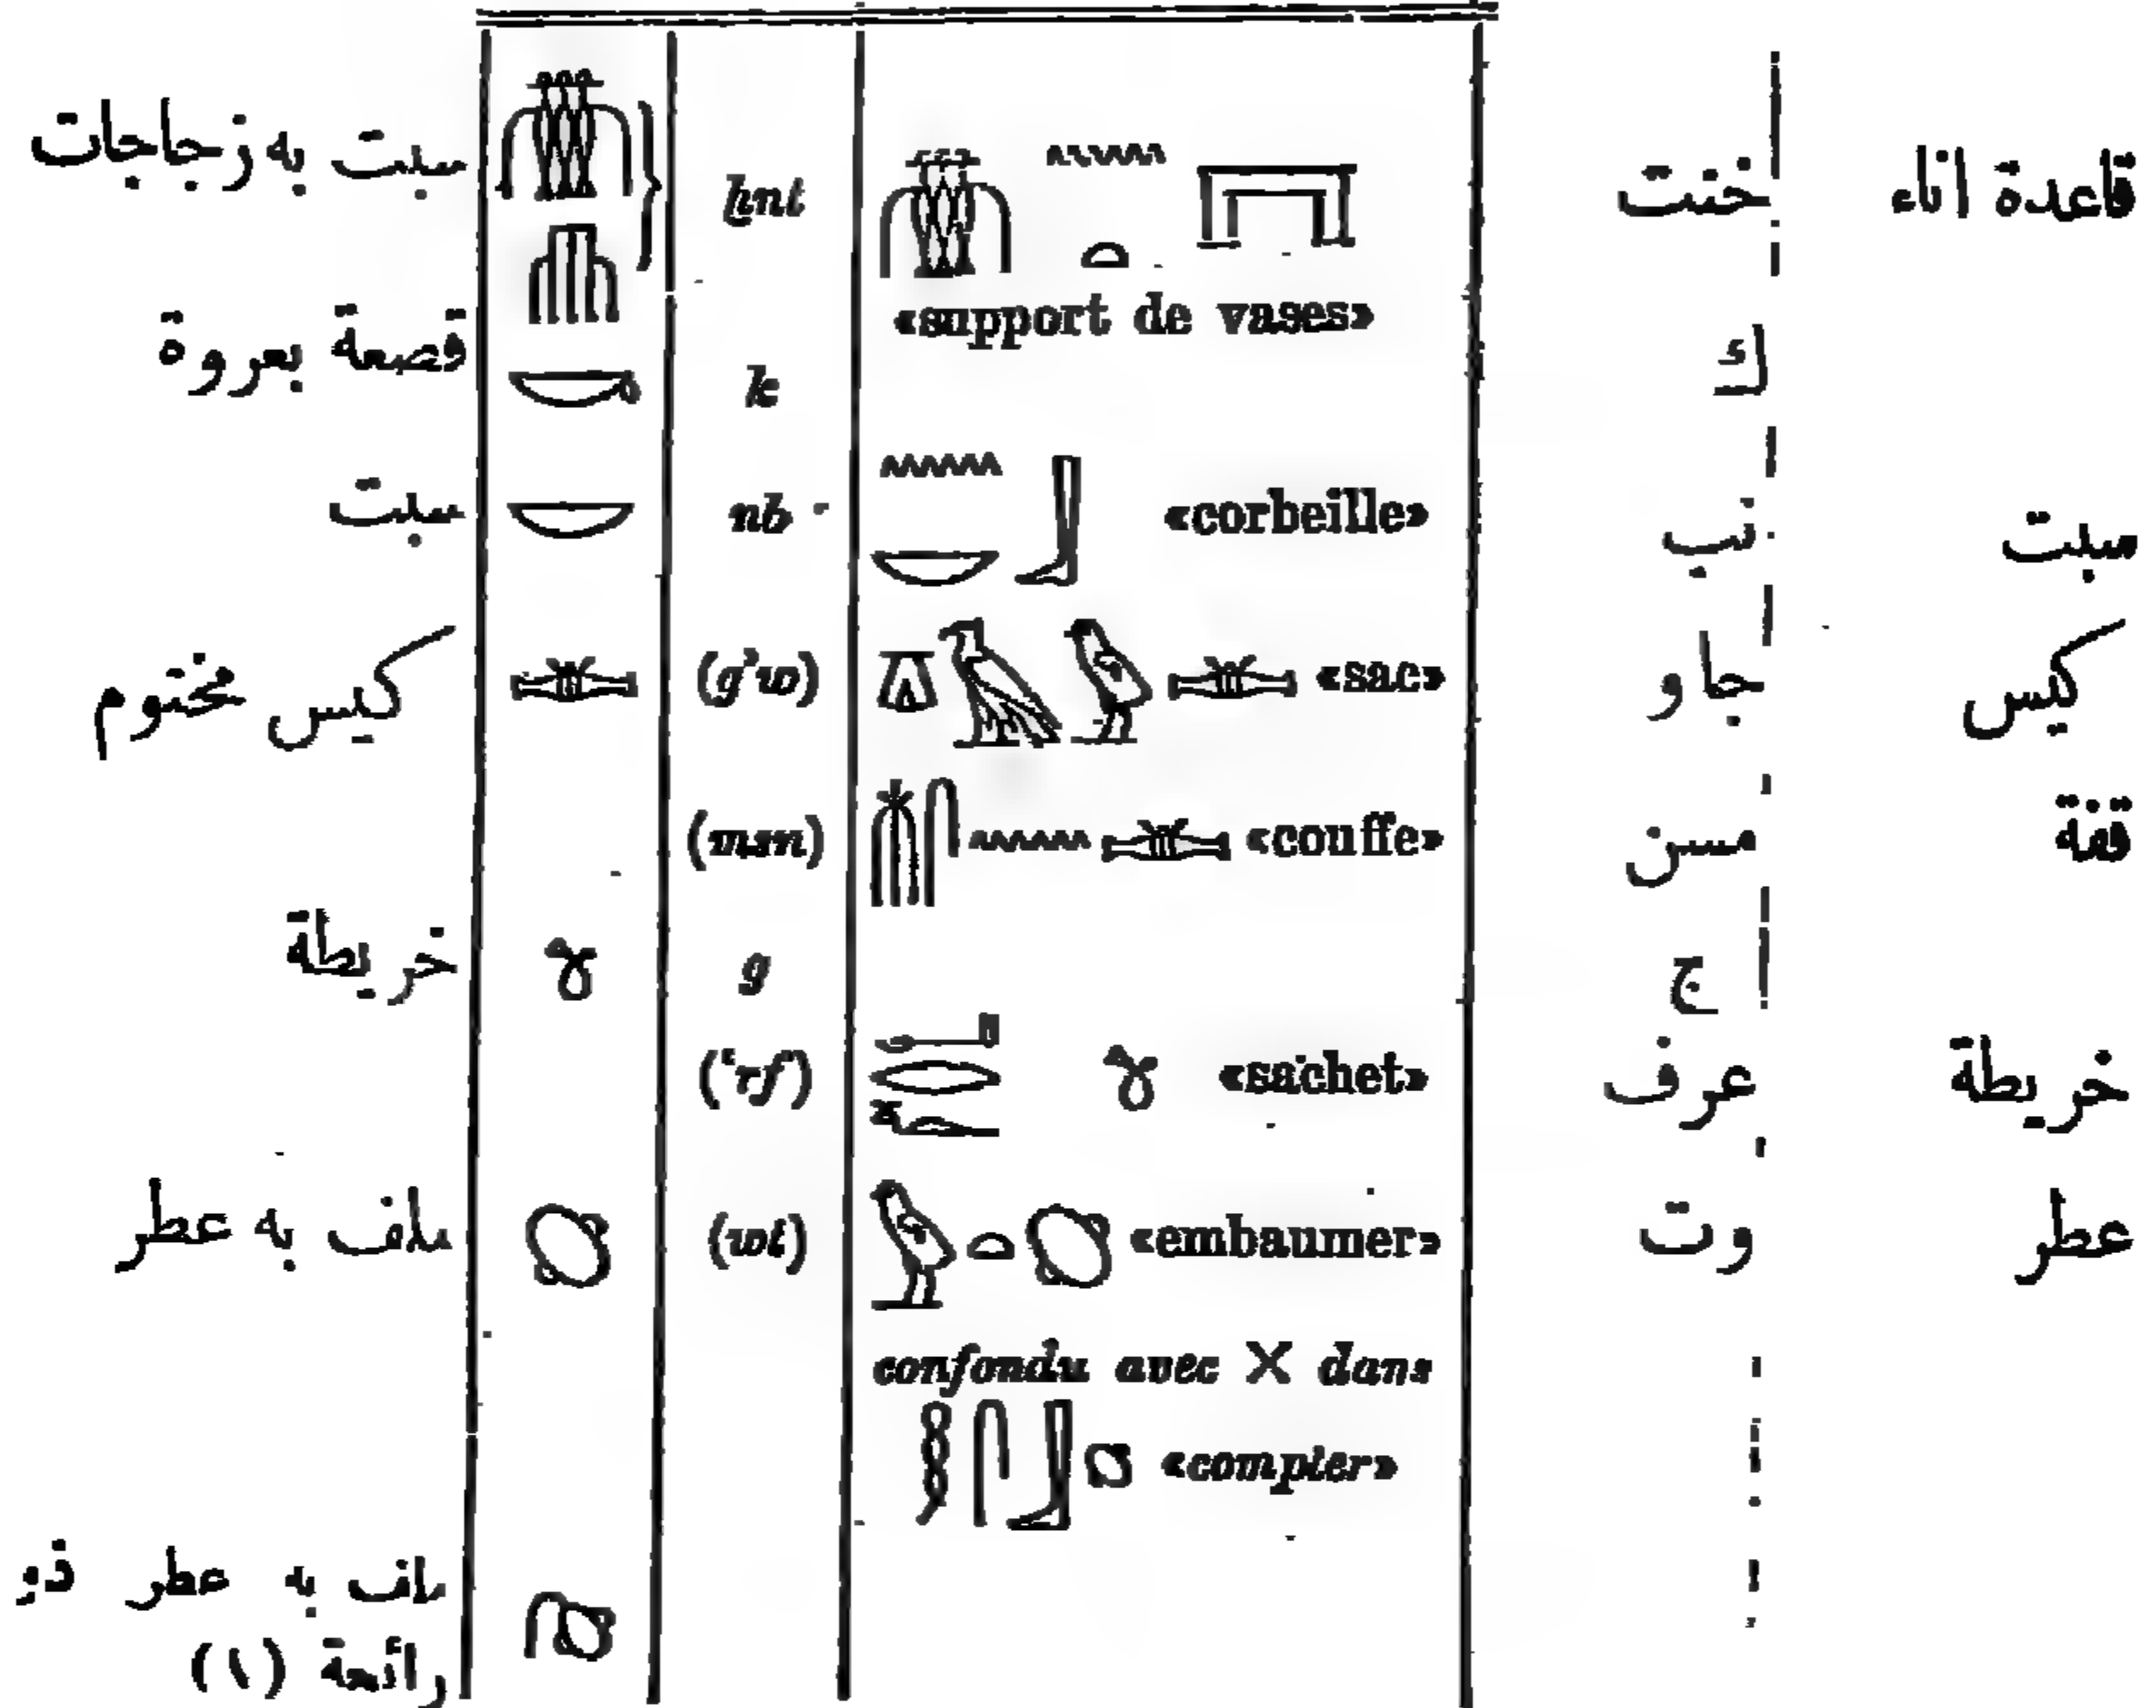 سبت به زجاجات ḫnt خنت قاعدة اناء
«support de vases»
قصعة بعروة k ك
سبت nb «corbeille» نب سبت
كيس مختوم (g’w) «sac» جاو كيس
(msn) «couffe» مسن قفة
خريطة g ج
(‘rf) «sachet» عرف خريطة
ملف به عطر (wt) «embaumer» وت عطر
confondu avec X dans
«compter»
ملف به عطر ذو
رائحة (١)